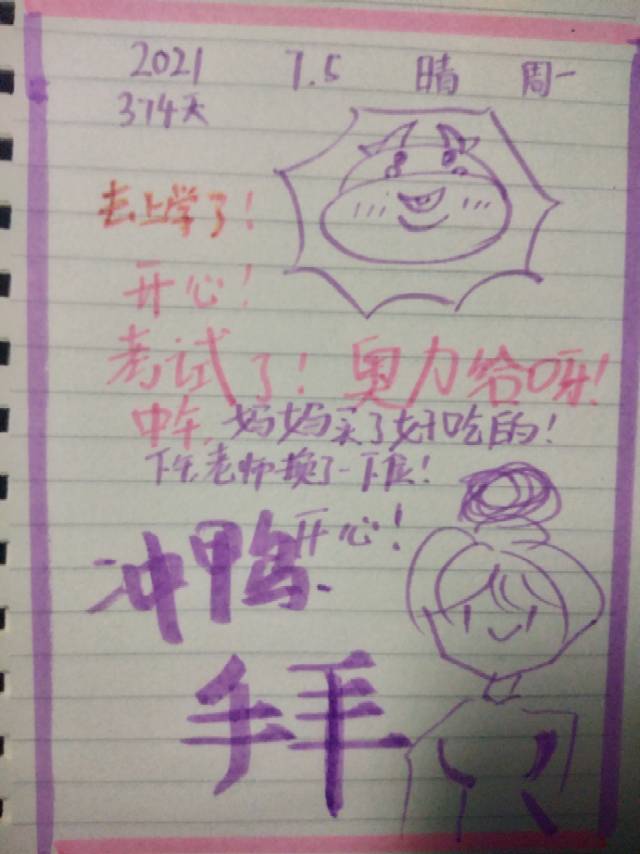 2021 7.5 晴 周一
374天
去上学了!
开心!
考试了! 奥力给呀!
中午,妈妈买了好吃的!
下午,老师换了一下座!
开心!
冲鸭.